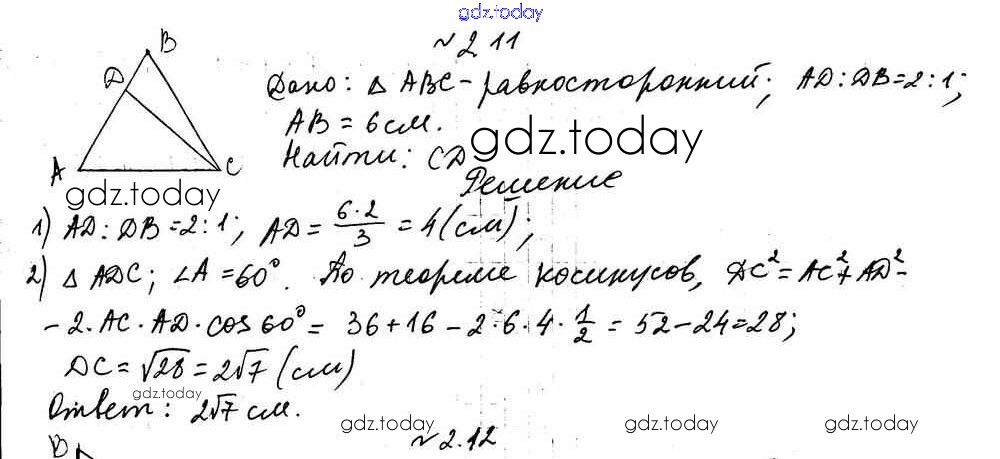 gdz.today
№ 2 11
B
D
A
C
Дано: △ ABC - равносторонний; AD:DB=2:1;
AB = 6 см.
gdz.today
Найти: CD
Решение
gdz.today
1) AD:DB=2:1; AD = 6·2/3 = 4 (см);
2) △ ADC; ∠A = 60°. По теореме косинусов, DC² = AC² + AD² -
- 2·AC·AD·cos 60° = 36 + 16 - 2·6·4·1/2 = 52 - 24 = 28;
DC = √28 = 2√7 (см)
gdz.today
Ответ: 2√7 см.
gdz.today gdz.today gdz.today
№ 2.12
B